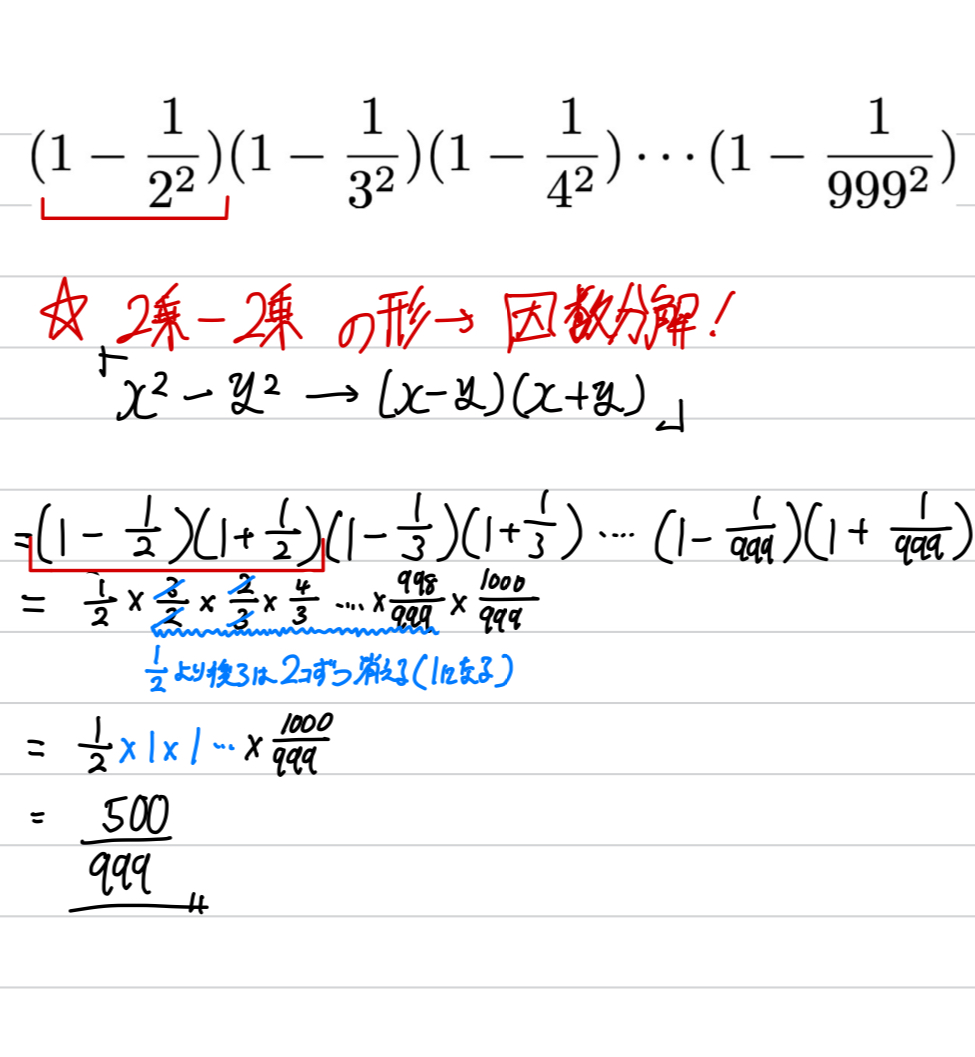 (1 − 1/2²)(1 − 1/3²)(1 − 1/4²)⋯(1 − 1/999²)
☆ 2乗−2乗 の形→ 因数分解!
「x²−y² → (x−y)(x+y)」
=(1−1/2)(1+1/2)(1−1/3)(1+1/3)⋯(1−1/999)(1+1/999)
= 1/2 × 3/2 × 2/3 × 4/3 ⋯ × 998/999 × 1000/999
1/2より後ろは2コずつ消える(1になる)
= 1/2 ×1×1⋯ × 1000/999
= 500/999